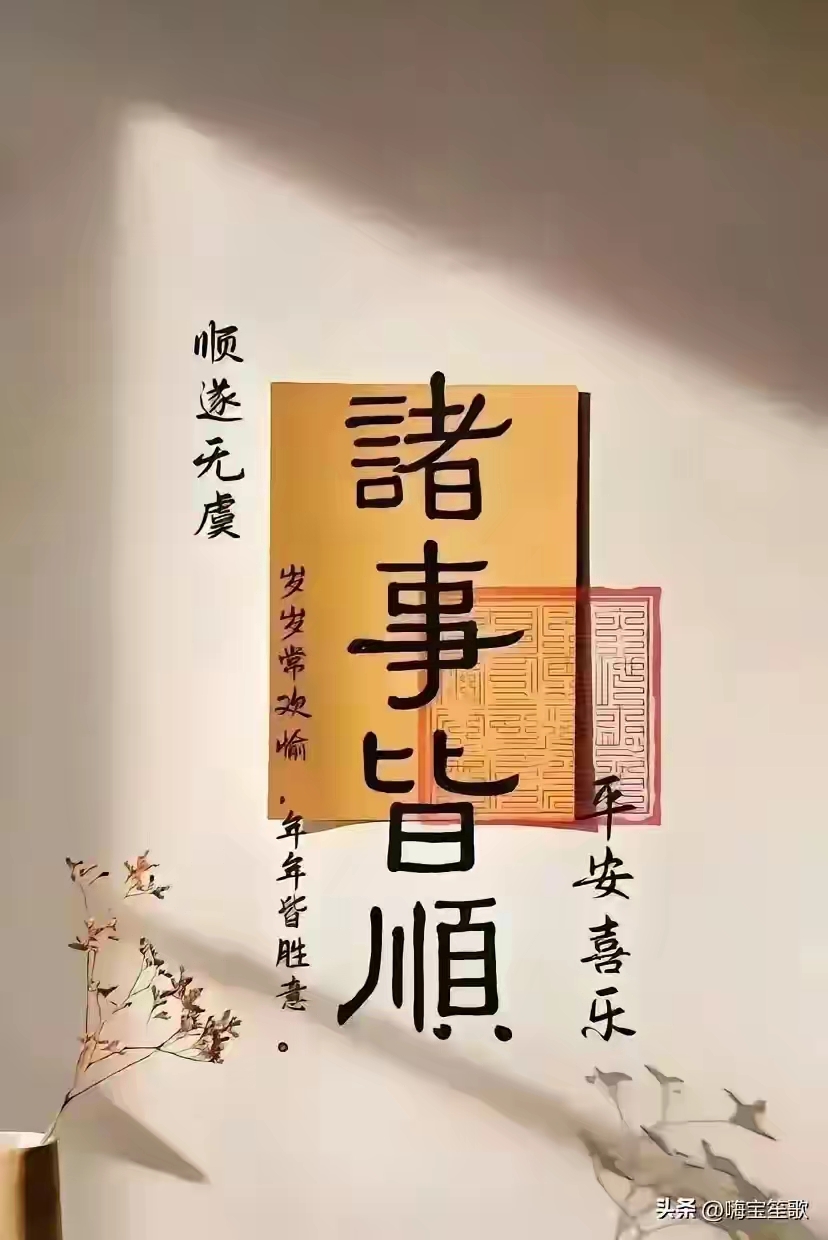 諸事皆順
顺遂无虞
岁岁常欢愉，年年皆胜意。
平安喜乐
头条 @嗨宝笙歌